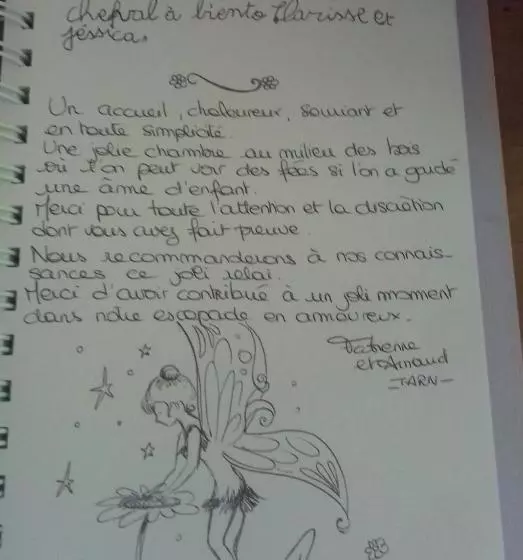 cheval à biento Clarisse et
jéssica.
Un accueil, chaloureux, souriant et
en toute simplicité.
Une jolie chambre au milieu des bois
où l'on peut voir des fées si l'on a gardé
une âme d'enfant.
Merci pour toute l'attention et la discrétion
dont vous avez fait preuve.
Nous recommanderons à nos connais-
sances ce joli relai.
Merci d'avoir contribué à un joli moment
dans notre escapade en amoureux.
et Arnaud
-TARN-